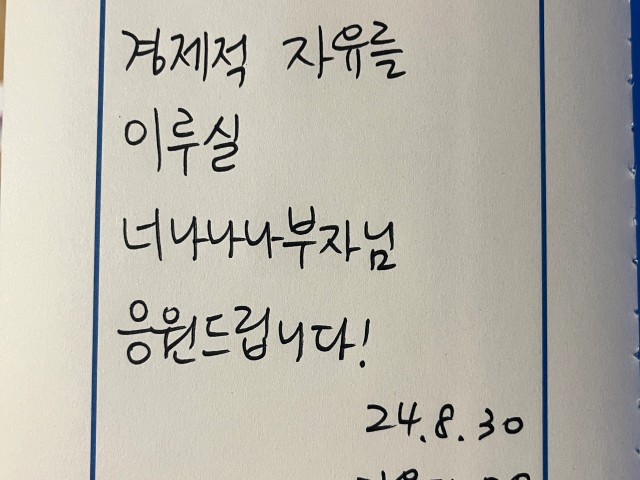 경제적 자유를
이루실
너나나나부자님
응원드립니다!
24.8.30